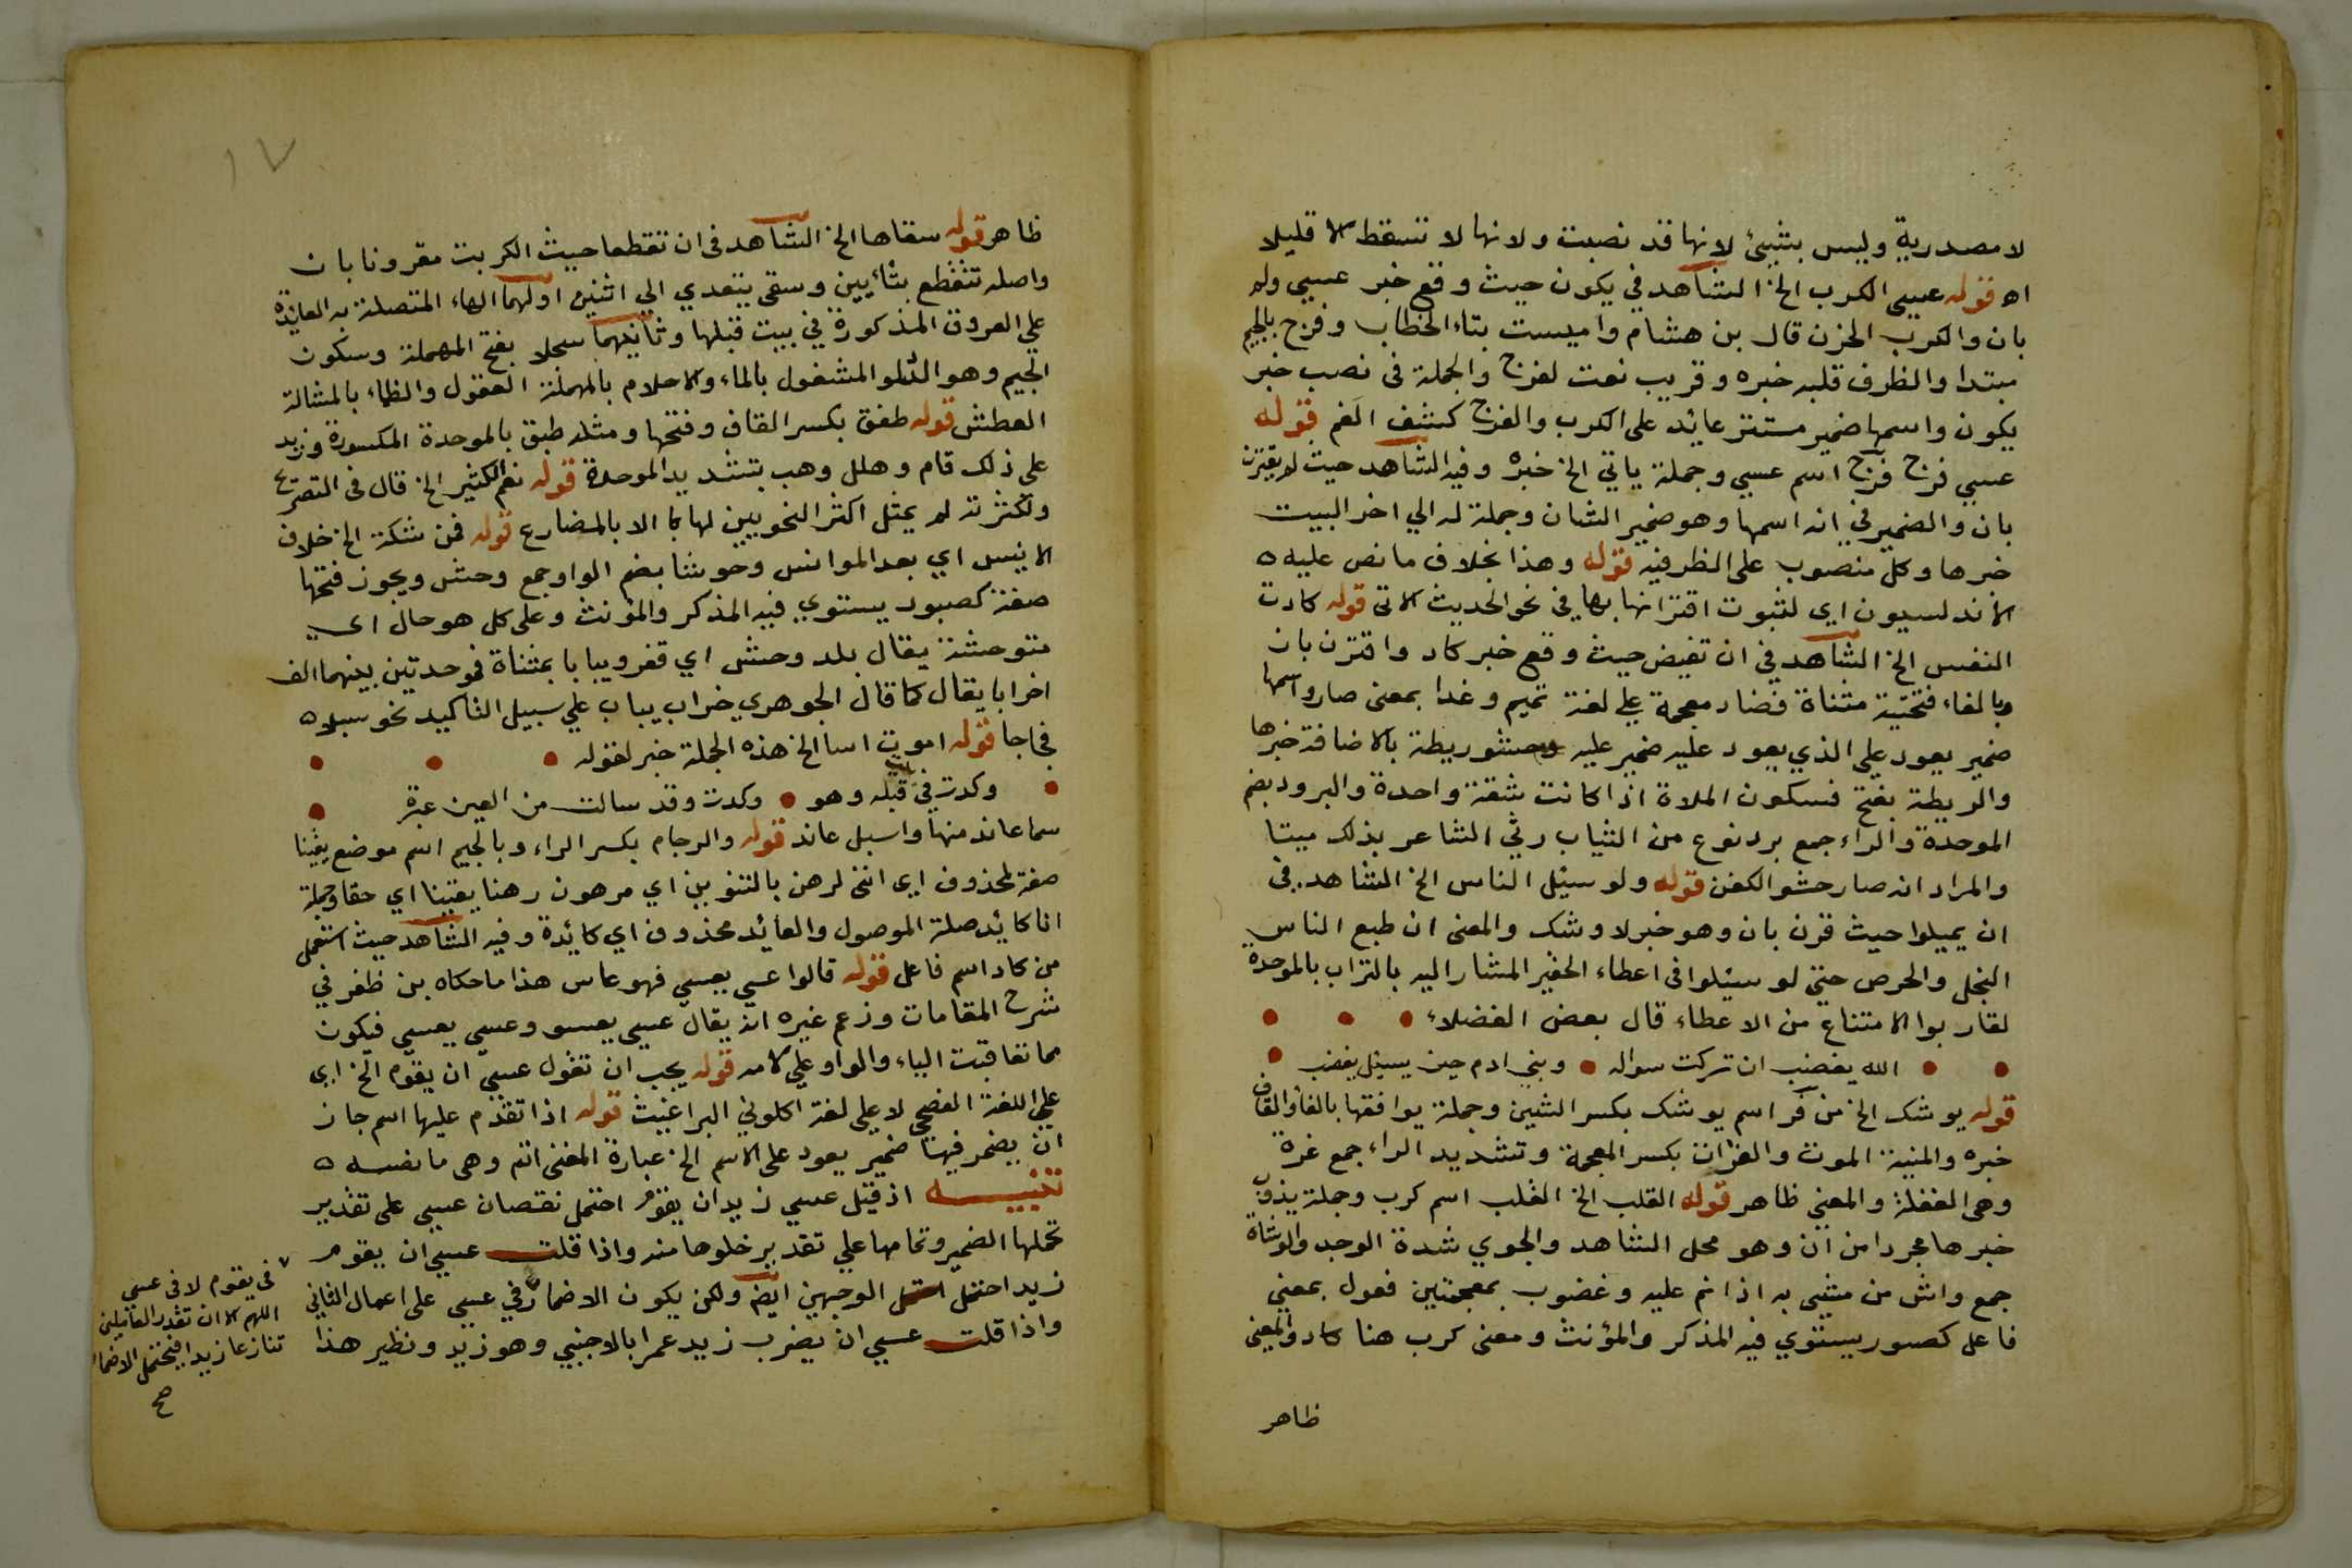 لا مصدرية وليس بشيئ لانها قد نصبت ولانها لا تسقط الا قليلا
اه قوله عسى الكرب الخ الشاهد في يكون حيث وقع خبر عسي ولم
بان والكرب الحزن قال بن هشام واميست بتاء الخطاب وفرج بالجيم
مبتدا والظرف قلبه خبره وقريب نعت لفرج والجملة فى نصب خبر
يكون واسمها ضمير مستتر عائد على الكرب والفرج كشف الغم قوله
عسي فرج فرج اسم عسي وجملة ياتي الخ خبره وفيه الشاهد حيث لم يقترن
بان والضمير في انه اسمها وهو ضمير الشان وجملة له الي اخر البيت
خبرها وكل منصوب على الظرفيه قوله وهذا بخلاف ما نص عليه ه
الاندلسيون اي لثبوت اقترانها بها في نحو الحديث الاتى قوله كادت
النفس الخ الشاهد في ان تفيض حيث وقع خبر كاد واقترن بان
وبالفاء فتحتية مثناة فضاد معجمة على لغة تميم وغدا بمعنى صار واسمها
ضمير يعود علي الذي يعود عليه ضمير عليه وحشو ريطة بالاضافة خبرها
والريطة بفتح فسكون الملاة اذا كانت شقة واحدة والبرود بضم
الموحدة والراء جمع برد نوع من الثياب رثي الشاعر بذلك ميتا
والمراد انه صار حشو الكفن قوله ولو سيئل الناس الخ الشاهد في
ان يميلوا حيث قرن بان وهو خبر لاوشك والمعنى ان طبع الناس
البخل والحرص حتى لو سيئلوا فى اعطاء الحقير المشار اليه بالتراب بالموحدة
لقاربوا الامتناع من الاعطاء قال بعض الفضلاء
الله يغضب ان تركت سواله وبني ادم حين يسيئل يغضب
قوله يوشك الخ من فر اسم يوشك بكسر الشين وجملة يوافقها بالفا والقاف
خبره والمنية الموت والغرات بكسر المعجمة وتشديد الراء جمع غرة
وهى الغفلة والمعني ظاهر قوله القلب الخ القلب اسم كرب وجملة يذوب
خبرها مجردا من ان وهو محل الشاهد والجوي شدة الوجد والوشاة
جمع واش من مشى به اذا نم عليه وغضوب بمعجمتين فعول بمعنى
فاعل كصبور يستوي فيه المذكر والمؤنث ومعنى كرب هنا كاد والمعنى
ظاهر
١٧
ظاهر قوله سقاها الخ الشاهد فى ان تقطعا حيث الكربت مقرونا بان
واصله تتقطع بتائيين وسقى يتعدي الي اثنين اولهما الهاء المتصلة به العائدة
علي العروق المذكورة في بيت قبلها وثانيهما سجلا بفتح المهملة وسكون
الجيم وهو الدلو المشغول بالماء والاحلام بالمهملة العقول والظاء بالمشالة
العطش قوله طفق بكسر القاف وفتحها ومثله طبق بالموحدة المكسورة وزيد
على ذلك قام وهلل وهب بتشديد الموحدة قوله نعم الكثير الخ قال فى التصريح
ولكثرته لم يمثل اكثر النحويين لها كا الا بالمضارع قوله فمن شكة الخ خلاف
الانيس اي بعد الموانس وحوشا بضم الواو جمع وحش ويجوز فتحها
صفة كصبور يستوي فيه المذكر والمؤنث وعلى كل هو حال اي
متوحشة يقال بلد وحش اي قفر ويبابا بمثناة فموحدتين بينهما الف
اخرابا يقال كما قال الجوهري خراب يباب علي سبيل التاكيد نحو سبلا ه
فجاجا قوله اموت اسا الخ هذه الجملة خبر لقوله
وكدت في بيت قبله وهو وكدت وقد سالت من العين عبرة
سما عاند منها واسبل عاند قوله والرجام بكسر الراء وبالجيم اسم موضع يقينا
صفة لمحذوف اي انني لرهن بالتنوين اي مرهون رهنا يقينا اي حقا وجملة
انا كائد صلة الموصول والعائد محذوف اي كائدة وفيه الشاهد حيث استعمل
من كاد اسم فاعل قوله قالوا عسي يعسي فهو عاس هذا ما حكاه بن ظفر في
شرح المقامات وزعم غيره انه يقال عسي يعسو وعسي يعسي فيكون
مما تعاقبت الياء والواو علي لامه قوله يجب ان تقول عسي ان يقوم الخ اي
علي اللغة الفصحى لا علي لغة اكلوني البراغيث قوله اذا تقدم عليها اسم جاز
ان يضمر فيها ضمير يعود على الاسم الخ عبارة المغنى اتم وهى ما نصه ه
تنبيه اذ قيل عسي زيد ان يقوم احتمل نقصان عسي على تقدير
تحملها الضمير وتمامها علي تقدير خلوها منه واذا قلت عسي ان يقوم
زيد احتمل الوجهين ايضا ولكن يكون الاضمار في عسي على اعمال الثاني
واذا قلت عسي ان يضرب زيد عمرا بالاجنبي وهو زيد ونظير هذا
فى يقوم لا فى عسى
اللهم الا ان تقدر العاملين
تنازعا زيدا فيحتمل الاضمار
صح